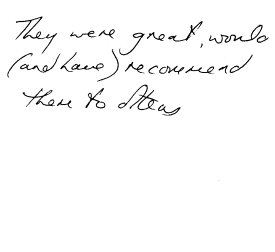 They were great, would
(and have) recommend
them to others